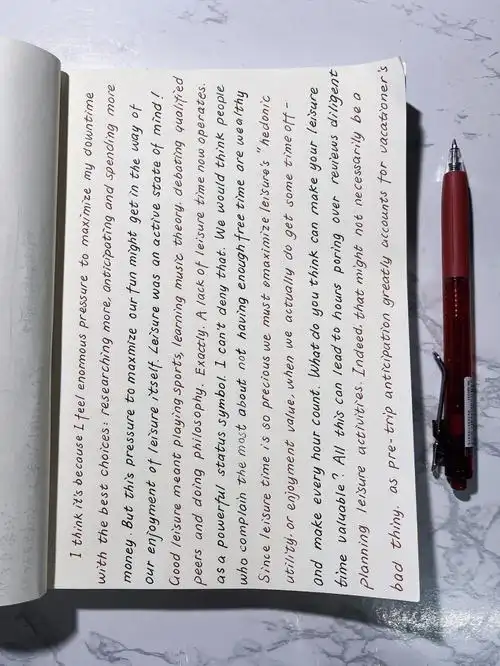 I think it's because I feel enormous pressure to maximize my downtime
with the best choices: researching more, anticipating and spending more
money. But this pressure to maximize our fun might get in the way of
our enjoyment of leisure itself. Leisure was an active state of mind!
Good leisure meant playing sports, learning music theory, debating qualified
peers and doing philosophy. Exactly. A lack of leisure time now operates.
as a powerful status symbol. I can't deny that. We would think people
who complain the most about not having enough free time are wealthy
Since leisure time is so precious we must omaximize leisure's "hedonic
utility. or enjoyment value. when we actually do get some time off-
and make every hour count. What do you think can make your leisure
time valuable? All this can lead to hours poring over reviews diligent
planning leisure activities. Indeed. that might not necessarily be a
bad thiny. as pre-trip anticipation greatly accounts for vacationer's